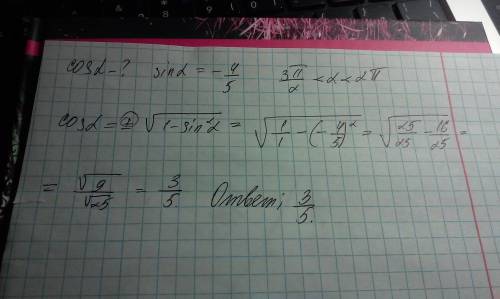 cosα-? sinα = -4/5 3π/2 < α < 2π
cosα = ± √(1-sin²α) = √(1/1 - (-4/5)²) = √(25/25 - 16/25) =
= √9/√25 = 3/5 Ответ: 3/5.